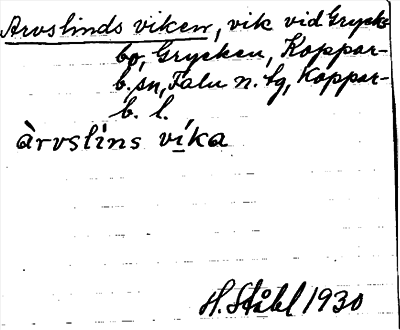 Arvslinds viken, vik vid Grycks-
bo, Grycken, Koppar-
b. sn, Falu n. tg, Koppar-
b. l.
àrvslíns víka
H. Ståhl 1930